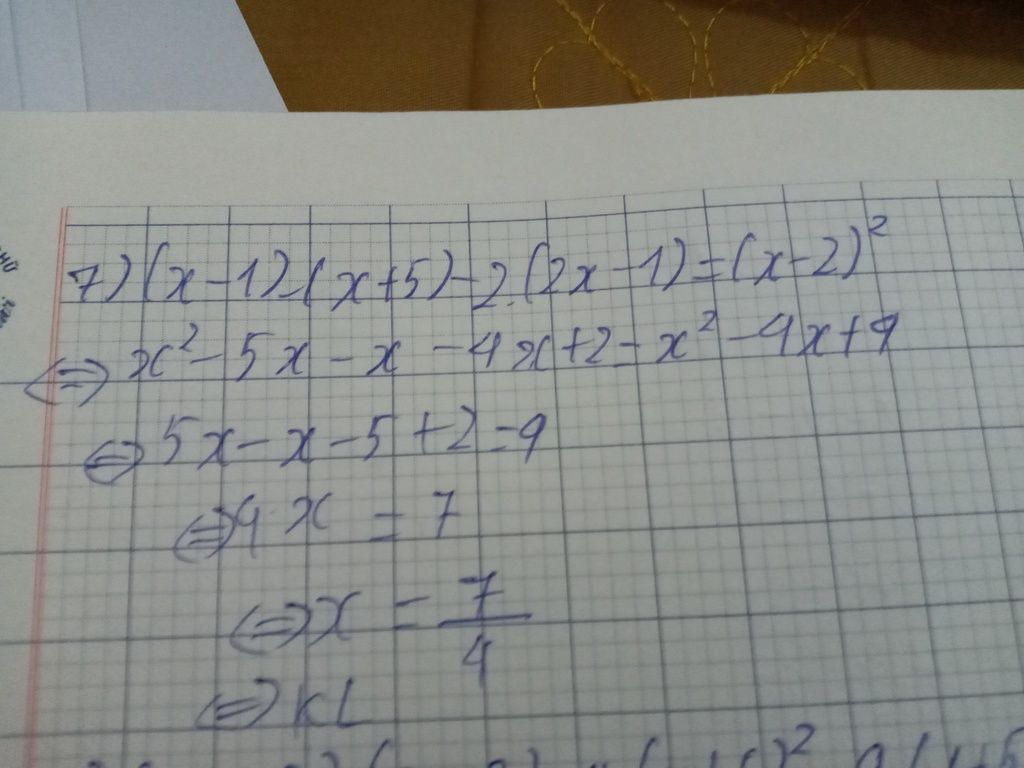 7) (x-1).(x+5)-2.(2x-1)=(x-2)²
⇔ x²-5x-x-4x+2=x²-4x+4
⇔ 5x-x-5+2=4
⇔ 4x = 7
⇔ x = 7/4
⇔ KL